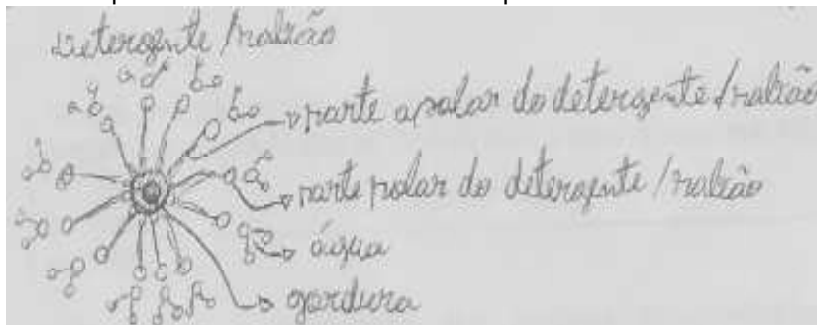 Detergente / sabão
parte apolar do detergente / sabão
parte polar do detergente / sabão
água
gordura